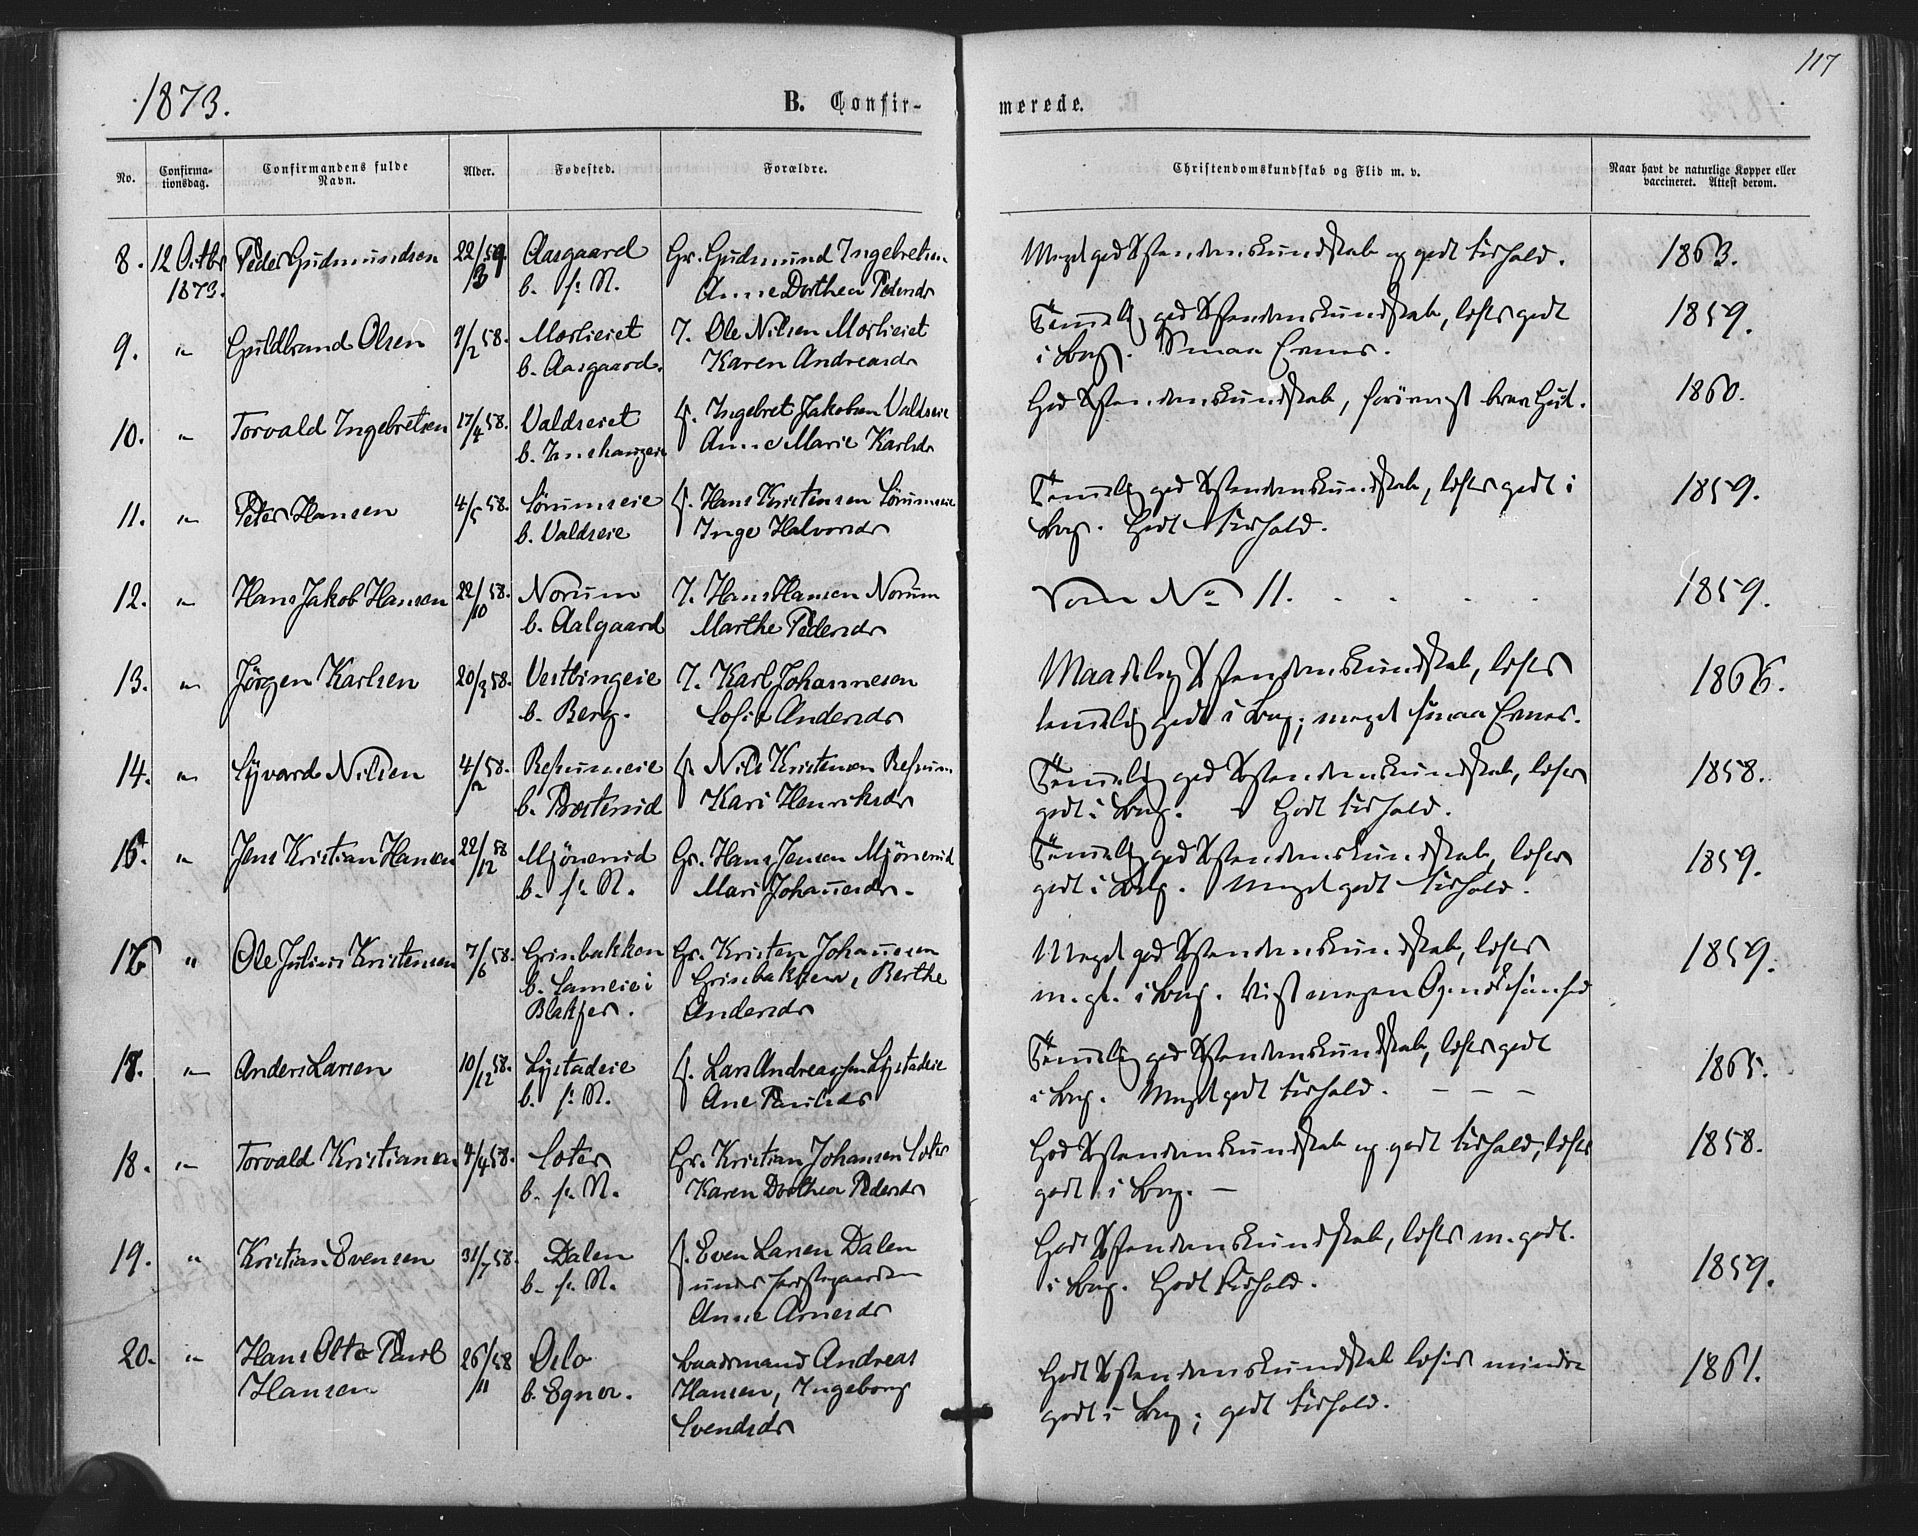 117
1873.
B. Confir-
merede.
No.
Confirma-
tionsdag.
Confirmandens fulde
Navn.
Alder.
Fødested.
Forældre.
Christendomskundskab og Flid m. v.
Naar havt de naturlige Kopper eller
vaccineret. Attest derom.
8. 12 Octbr Peder Gudmundsen 22/3 59 Aasgaard Gr. Gudmund Ingebretsen Meget god Kristendomskundskab og godt Forhold. 1863.
1873. b. s. N. Anne Dorthea Pedersdr
9. " Guldbrand Olsen 9/2 58. Morlieiet I. Ole Nilsen Morlieiet Temmelig god Kristendomskundskab, læser godt 1859.
b. Aasgaard. Karen Andreasdr i Bog. Smaa Evner.
10. " Torvald Ingebretsen 17/4 58. Valdseiet Ingebret Jakobsen Valdseie God Kristendomskundskab, forøvrigt brav Gut. 1860.
b. Anne Marie Karlsdr
11. " Peter Hansen 4/5 58. Sörumseie Hans Kristensen Sörumseie Temmelig god Kristendomskundskab, læser godt i 1859.
b. Valdseie Inge Halvorsdr Bog. Godt Forhold.
12. " Hans Jakob Hansen 22/10 58. Norum I. Hans Hansen Norum Som No 11. 1859.
b. Aalgaard Marthe Pedersdr
13. " Jörgen Karlsen 20/3 58. Vestbingeie I. Karl Johannesen Maadelig Kristendomskundskab, læser 1866.
b. Berg. Sofie Andersdr temmelig godt i Bog; meget smaa Evner.
14. " Syvard Nilsen 4/2 58. Refsumeie Nils Kristensen Refsum Temmelig god Kristendomskundskab, læser 1858.
b. Kari Henriksdr godt i Bog. Godt Forhold.
15. " Jens Kristian Hansen 22/12 58 Mjönerud Gr. Hans Jensen Mjönerud Temmelig god Kristendomskundskab, læser 1859.
b. s. N. Mari Johannesdr. godt i Bog. Meget godt Forhold.
16 " Ole Julius Kristensen 7/6 58. Grinbakken Gr. Kristen Johannesen Meget god Kristendomskundskab, læser 1859.
b. i Grinbakken, Berthe m. gt. i Bog. Vist megen
Blakjer. Andersdr
17. " Anders Larsen 10/12 58. Lystadeie Lars Andreassen Lystadeie Temmelig god Kristendomskundskab, læser godt 1865.
b. s. N. Ane Paulsdr i Bog. Meget godt Forhold.
18. " Torvald Kristiansen 4/4 58. Loter Gr. Kristian Johansen Loter God Kristendomskundskab og godt Forhold, læser 1858.
b. s. N. Karen Dorthea Pedersdr godt i Bog.
19. " Kristian Evensen 31/7 58. Dalen Even Larsen Dalen God Kristendomskundskab, læser m. godt. 1859.
b. s. N. under i Bog. Godt Forhold.
Anne Arnesdr
20. " Hans Otto Paul 26/11 58 Oslo Baadsmand Andreas God Kristendomskundskab læser mindre 1861.
Hansen b. Egner. Hansen, Ingeborg godt i Bog; godt Forhold.
Svendsdr